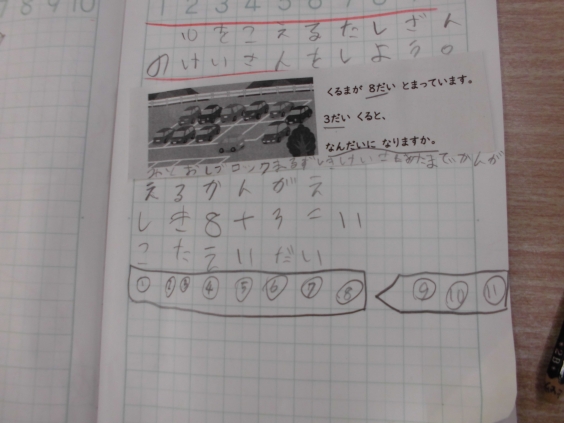 7 8 9 10
1 2 3 4 5 6 7 8
10をこえるたしざん
のけいさんをしよう。
くるまが 8だい とまっています。
3だい くると、
なんだいに なりますか。
ブロック
あたまでかんが
えるかんがえ
しき8+3=11
こたえ11だい
① ② ③ ④ ⑤ ⑥ ⑦ ⑧ ⑨ ⑩ ⑪